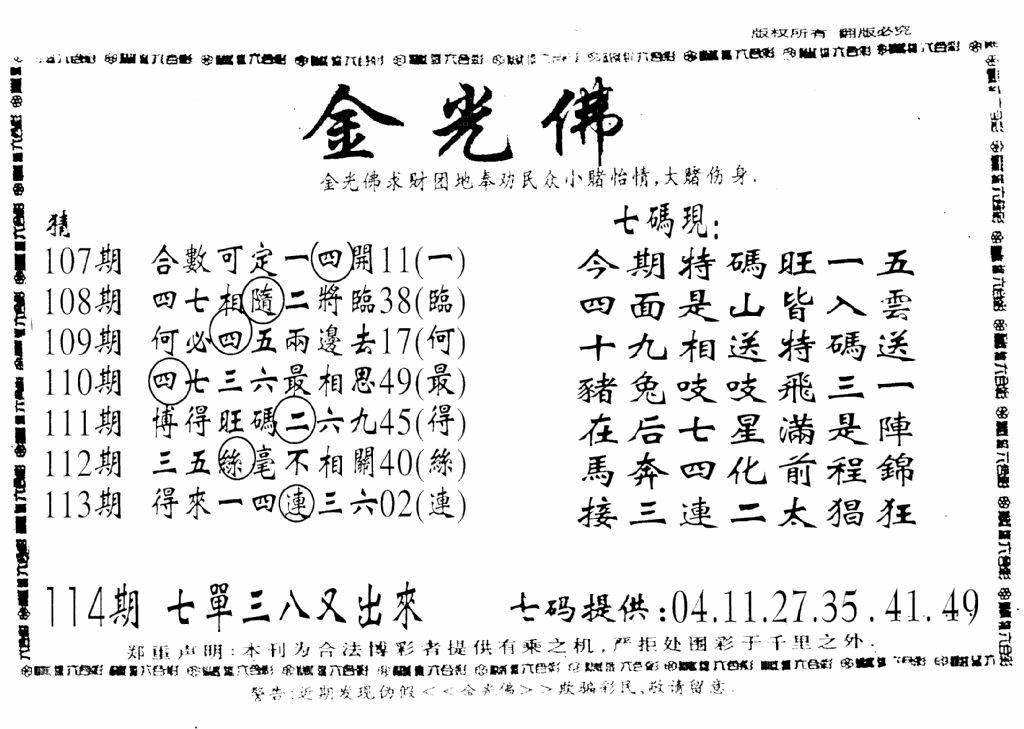 版权所有 翻版必究
金光佛
金光佛求財团地奉劝民众小赌怡情,大赌伤身.
猜
107期 合數可定一四開11(一)
108期 四七相隨二將臨38(臨)
109期 何必四五兩邊去17(何)
110期 四七三六最相思49(最)
111期 博得旺碼二六九45(得)
112期 三五絲毫不相關40(絲)
113期 得來一四連三六02(連)
七碼現:
今期特碼旺一五
四面是山皆入雲
十九相送特碼送
豬兔吱吱飛三一
在后七星滿是陣
馬奔四化前程錦
接三連二太猖狂
114期 七單三八又出來
七码提供:04.11.27.35.41.49
郑重声明:本刊为合法博彩者提供有乘之机,严拒处围彩于千里之外.
警告:近期发现伪假<<金光佛>>欺骗彩民,敬请留意.